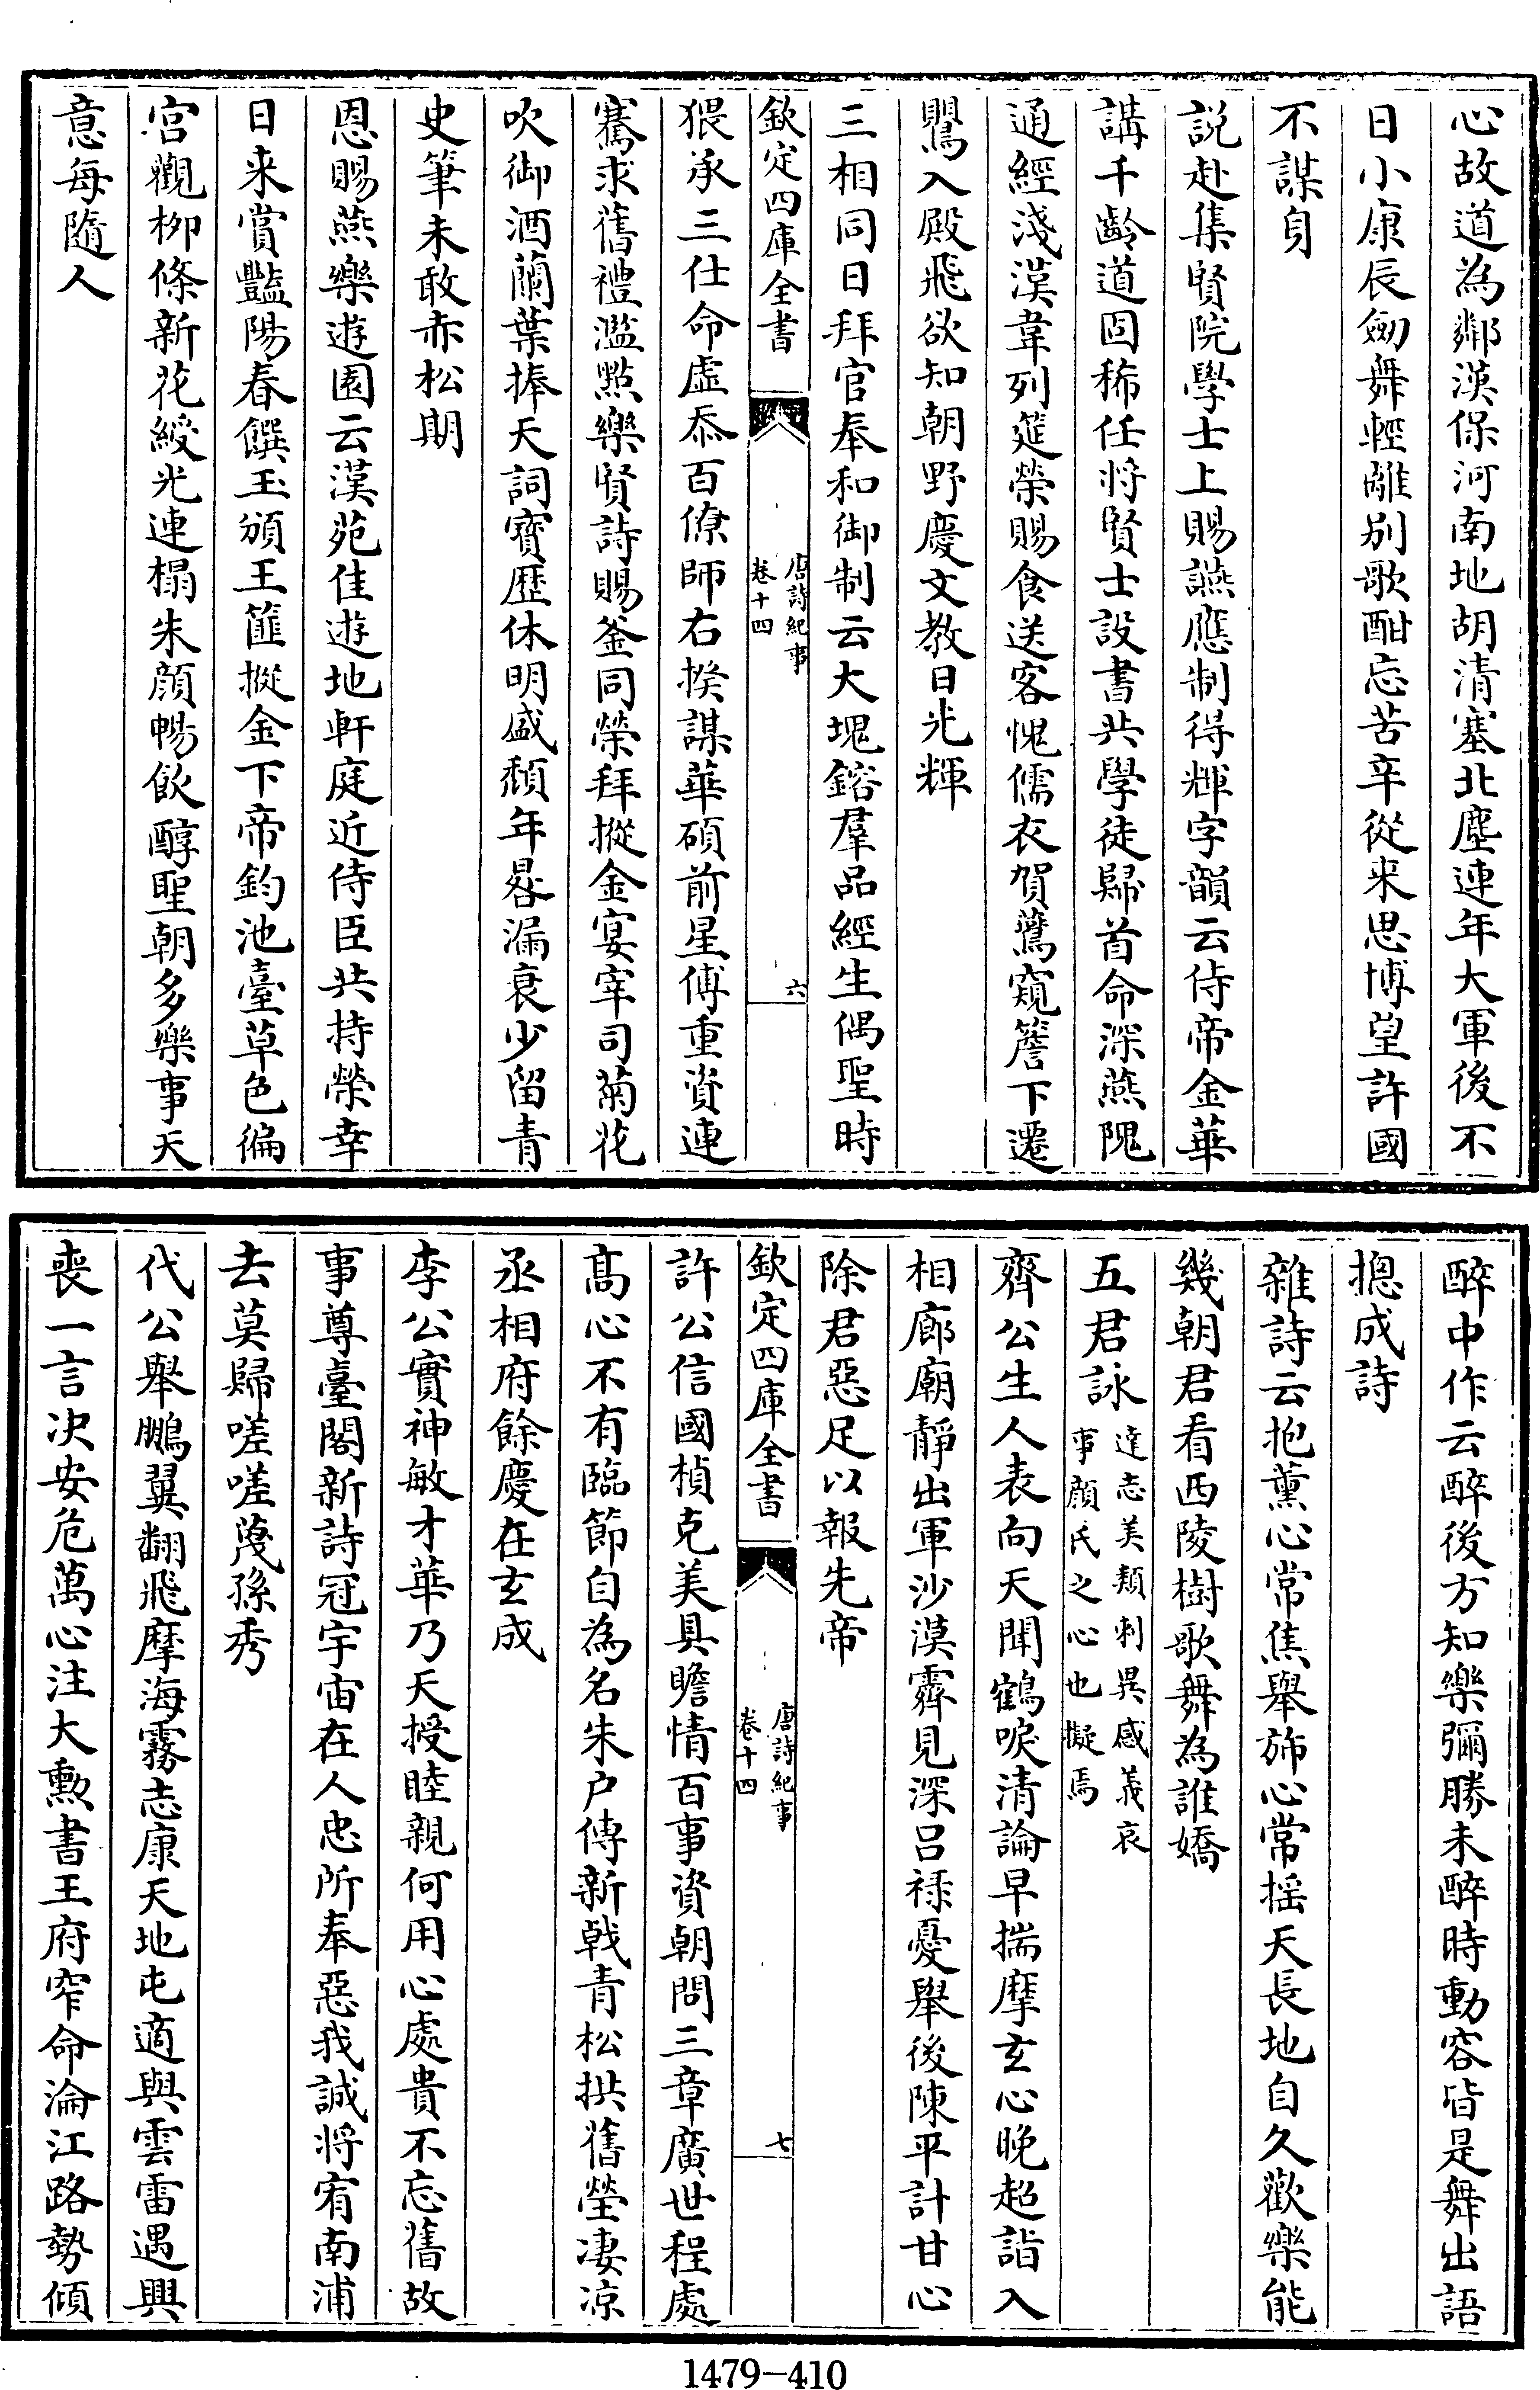 心故道為鄰漢保河南地胡清塞北塵連年大軍後不
日小康辰劒舞輕離别歌酣忘苦辛從来思博望許國
不謀身
説赴集賢院學士上賜讌應制得輝字韻云侍帝金華
講千齡道固稀任将賢士設書共學徒歸首命深燕隗
通經淺漢韋列筵榮賜食送客愧儒衣賀鷰窺簷下遷
鸎入殿飛欲知朝野慶文教日光輝
三相同日拜官奉和御制云大塊鎔羣品經生偶聖時
欽定四庫全書
唐詩紀事
卷十四
六
猥承三仕命虚忝百僚師右揆謀華碩前星傅重資連
騫求舊禮濫㸃樂賢詩賜釜同榮拜摐金宴宰司菊花
吹御酒蘭葉捧天詞寳歴休明盛頽年晷漏衰少留青
史筆未敢赤松期
恩賜燕樂遊園云漢苑佳遊地軒庭近侍臣共持榮幸
日来賞豔陽春饌玉頒王篚摐金下帝鈞池臺草色徧
宫觀栁條新花綬光連榻朱顔暢飲醇聖朝多樂事天
意每隨人
醉中作云醉後方知樂彌勝未醉時動容皆是舞出語
揔成詩
雜詩云抱薰心常焦舉斾心常摇天長地自久歡樂能
幾朝君看西陵樹歌舞為誰嬌
五君詠達志美類刺異感義哀
事顔氏之心也擬焉
齊公生人表向天聞鶴唳清論早揣摩玄心晚超詣入
相廊廟靜出軍沙漠霽見深吕禄憂舉後陳平計甘心
除君惡足以報先帝
欽定四庫全書
唐詩紀事
卷十四
七
許公信國楨克美具瞻情百事資朝問三章廣世程處
髙心不有臨節自為名朱户傳新戟青松拱舊塋凄凉
丞相府餘慶在玄成
李公實神敏才華乃天授睦親何用心處貴不忘舊故
事尊臺閣新詩冠宇宙在人忠所奉惡我誠将宥南浦
去莫歸嗟嗟蔑孫秀
代公舉鵬翼翻飛摩海霧志康天地屯適與雲雷遇興
喪一言决安危萬心注大勲書王府窄命淪江路勢傾
1479-410